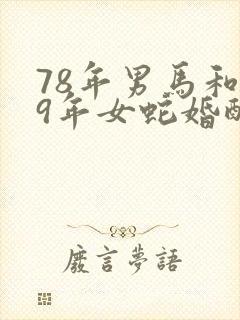 78年男馬和
9年女蛇婚配
廢言夢語